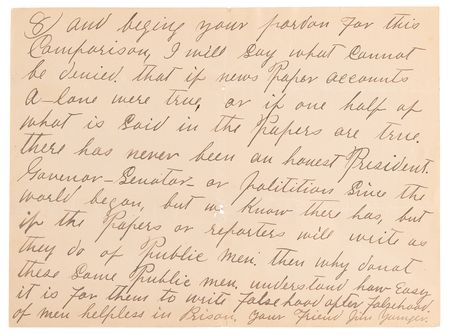 8) and beging your pardon for this
Comparison, I will say what cannot
be denied. that if news Paper accounts
a-lone were true, or if one half of
what is said in the Papers are true.
there has never been an honest President.
Govenor-Senator-or polititian since the
world began, but we Know there has, but
if the Papers or reporters will write as
they do of Public men. then why donot
these same Public men. understand how Easy
it is for them to write falsehood after falsehood.
of men helpless in Prison, your friend Jim Younger.